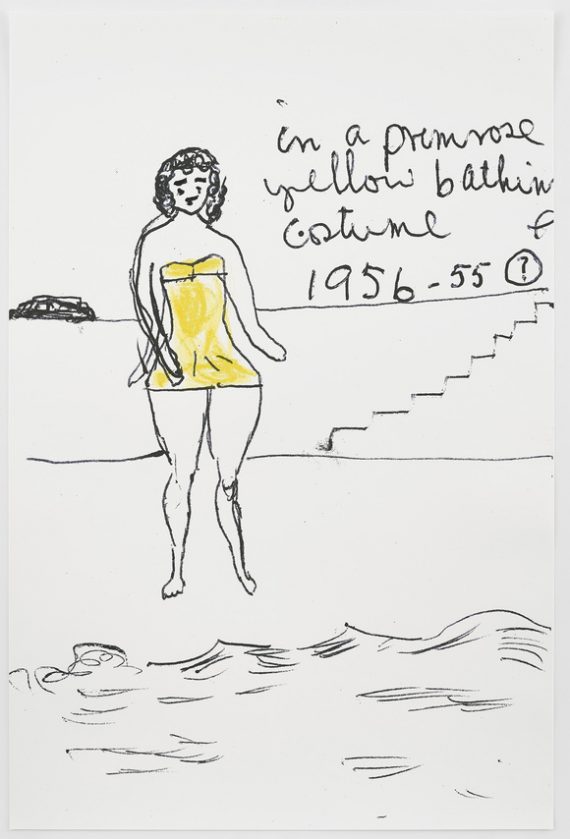 in a primrose
yellow bathin
costume
1956-55 ?